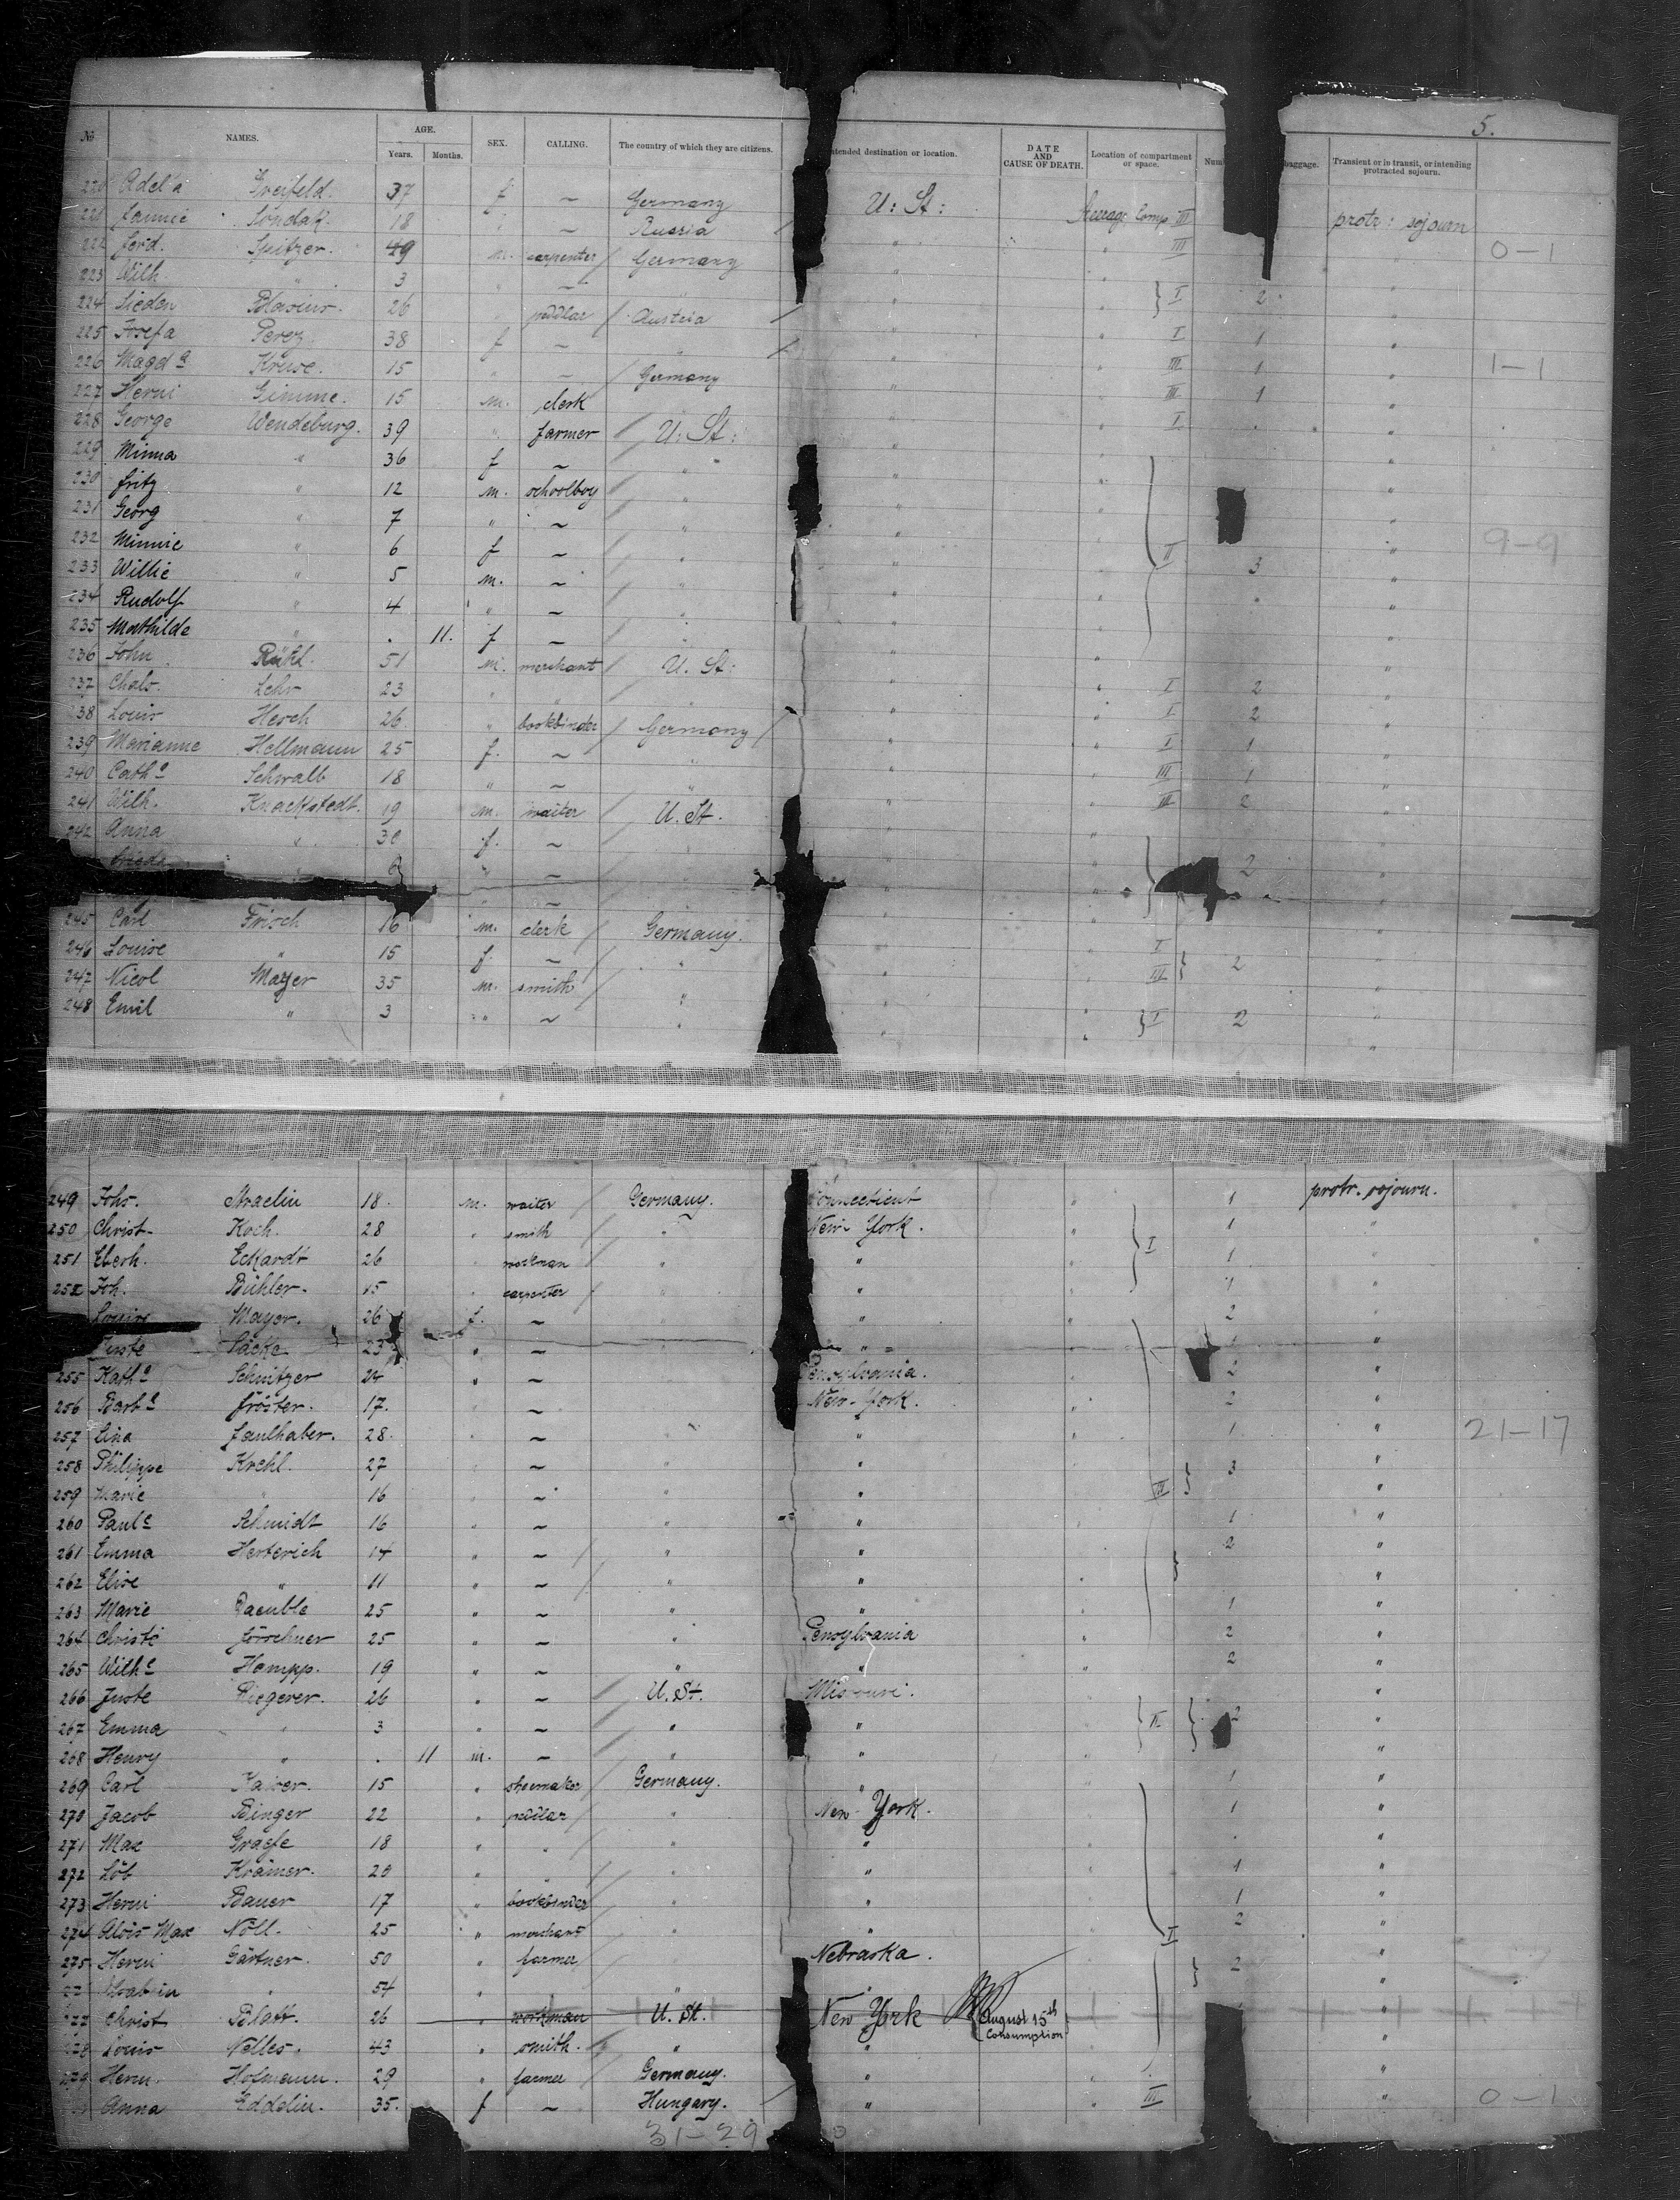 5.
№ NAMES. AGE. Years. Months. SEX. CALLING. The country of which they are citizens. intended destination or location. DATE AND CAUSE OF DEATH. Location of compartment or space. Num baggage. Transient or in transit, or intending protracted sojourn.
220 Adel'a Greifeld. 37 f ~ Germany U: St: Steerage Comp. III protr: sojourn
221 Fannie Sondak. 18 " ~ Russia " " III "
222 Ferd. Spitzer. 49 m. carpenter Germany " " 0-1
223 Wilh. " 3 " ~ " " " I 2 "
224 Sieden Blasius. 26 " pedlar Austria " " I 1 "
225 Josefa Perez 38 f ~ " " " III 1 " 1-1
226 Magdª Kruse. 15 " ~ Germany " " III 1 "
227 Herm Gimme. 15 m. clerk " " I "
228 George Wendeburg. 39 " farmer U: St: " " "
229 Minna " 36 f ~ " " " "
230 Fritz " 12 m. schoolboy " " " "
231 Georg " 7 " ~ " " " "
232 Minnie " 6 f ~ " " " II 3 " 9-9
233 Willie " 5 m. ~ " " " "
234 Rudolf " 4 " ~ " " " "
235 Mathilde " . 11. f ~ " " " "
236 John Rühl. 51 m. merchant U. St: " " I 2 "
237 Chas. Lehr 23 " " " " " I 2 "
238 Louis Hesch 26 " bookbinder Germany " " I 1 "
239 Marianne Hellmann 25 f. ~ " " " III 1 "
240 Cathª Schwalb 18 " ~ " " " III 2 "
241 Wilh. Knackstedt. 19 m. waiter U. St. " " "
242 Anna " 30 f. ~ " " " 2 "
Frieda " 6 " ~ " " "
245 Carl Frisch 16 m. clerk Germany. " " I "
246 Louise " 15 f. ~ " " " III 2 "
247 Nicol Mayer 35 m. smith " " " "
248 Emil " 3 " ~ " " " I 2 "
249 Johs. Straelin 18. m. waiter Germany. Connecticut " 1 protr. sojourn.
250 Christ. Koch. 28 " smith " New-York. " I 1 "
251 Eberh. Eckardt 26 " workman " " 1 "
252 Joh. Bühler. 15 " carpenter " " 1 "
Louise Mayer. 26 f. ~ " " " 2 "
Juste Säcke 23 " ~ " " " 1 "
255 Kathª Schnitzer 24 " ~ Pensylvania. 2 "
256 Barbª Fröster. 17. " ~ New-York. " 2 "
257 Lina Faulhaber. 28. " ~ " " 1 " 21-17
258 Philippe Krehl. 27 " ~ " " 3 "
259 Marie " 16 " ~ " " III "
260 Paulª Schmidt 16 " ~ " " 1 "
261 Emma Herterich 14 " ~ " " 2 "
262 Elise " 11 " ~ " " "
263 Marie Daeuble 25 " ~ " " 1 "
264 Christª Förschner 25 " ~ " Pensylvania " 2 "
265 Wilhª Hampp. 19 " ~ " " " 2 "
266 Juste Riegerer. 26 " ~ U. St. Missouri. "
267 Emma " 3 " ~ " " II 2 "
268 Henry " . 11 m. ~ " " " "
269 Carl Kaiser. 15 " shoemaker Germany. " 1 "
270 Jacob Binger 22 " pedlar " New-York. 1 "
271 Max Graefe 18 " " " " "
272 Löb Krämer. 20 " " " " 1 "
273 Herm Bauer 17 " bookbinder " " 1 "
274 Alois Max Nöll. 25 " merchant " " I 2 "
275 Herm Gärtner. 50 " farmer Nebraska. 2 "
" 54 " " " "
277 Christ Blatt. 26 " workman U. St. New York August 15th Consumption "
278 Louis Nelles. 43 " smith. " " "
279 Herm. Hofmann. 29 " farmer Germany. " "
Anna Eddelin. 35. f ~ Hungary. " " III " 0-1
31-29